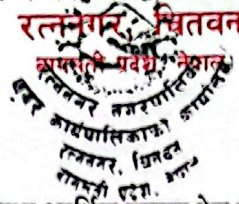 रत्ननगर, चितवन
बागमती प्रदेश, नेपाल
रत्ननगर नगरपालिका
नगर कार्यपालिकाको कार्यालय
रत्ननगर, चितवन
बागमती प्रदेश, नेपाल